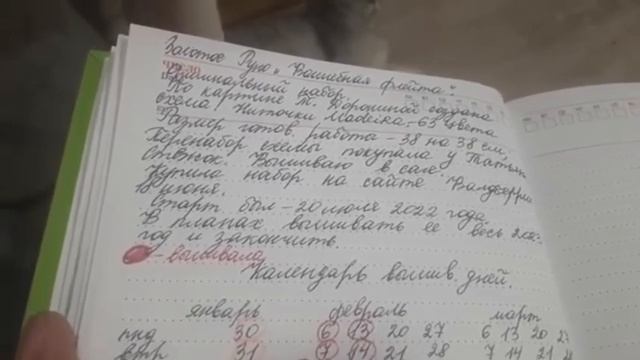 Золотое Руно „Волшебная флейта“
Оригинальный набор.
По картине Т. Дорониной создана
схема. Ниточки Madeira - 63 цвета
Размер готов. работы - 38 на 38 см.
Перенабор схемы покупала у Татьян
Стёнок. Вышиваю в сале.
Купила набор на сайте Валдберриз
18 июня.
Старт был - 20 июля 2022 года.
В планах вышивать её весь 202
год и закончить.
- вышивала
Календарь вышив. дней.
январь февраль март
пнд 30 6 13 20 27 6 13 20 2
втр 31 7 14 21 28 7 14 21